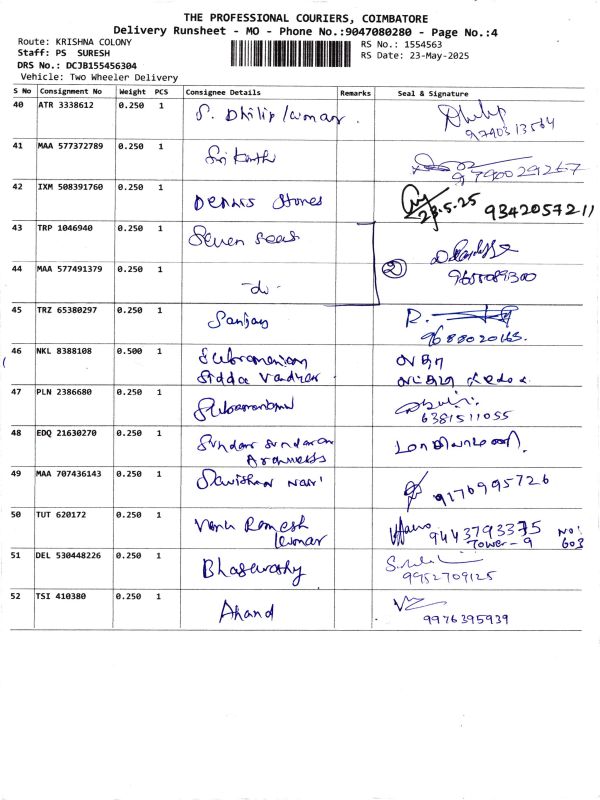 THE PROFESSIONAL COURIERS, COIMBATORE
Delivery Runsheet - MO - Phone No.:9047080280 - Page No.:4
Route: KRISHNA COLONY
Staff: PS SURESH
DRS No.: DCJB155456304
Vehicle: Two Wheeler Delivery
RS No.: 1554563
RS Date: 23-May-2025
S No Consignment No Weight PCS Consignee Details Remarks Seal & Signature
40 ATR 3338612 0.250 1 S. Philip kumar
41 MAA 577372789 0.250 1 Sri Kanth
42 IXM 508391760 0.250 1 Dennis Stones 23.5.25 9342057211
43 TRP 1046940 0.250 1 Seven seas
44 MAA 577491379 0.250 1 -do- 2 9655089300
45 TRZ 65380297 0.250 1 Sanjay 9688020165
46 NKL 8388108 0.500 1 Subramaniam
47 PLN 2386680 0.250 1 6381511055
48 EDQ 21630270 0.250 1 Sundar Sundaran
49 MAA 707436143 0.250 1 9176995726
50 TUT 620172 0.250 1 Ramesh kumar 9443793375 No: 603
Tower - 9
51 DEL 530448226 0.250 1 9952709125
52 TSI 410380 0.250 1 Anand 9976395939